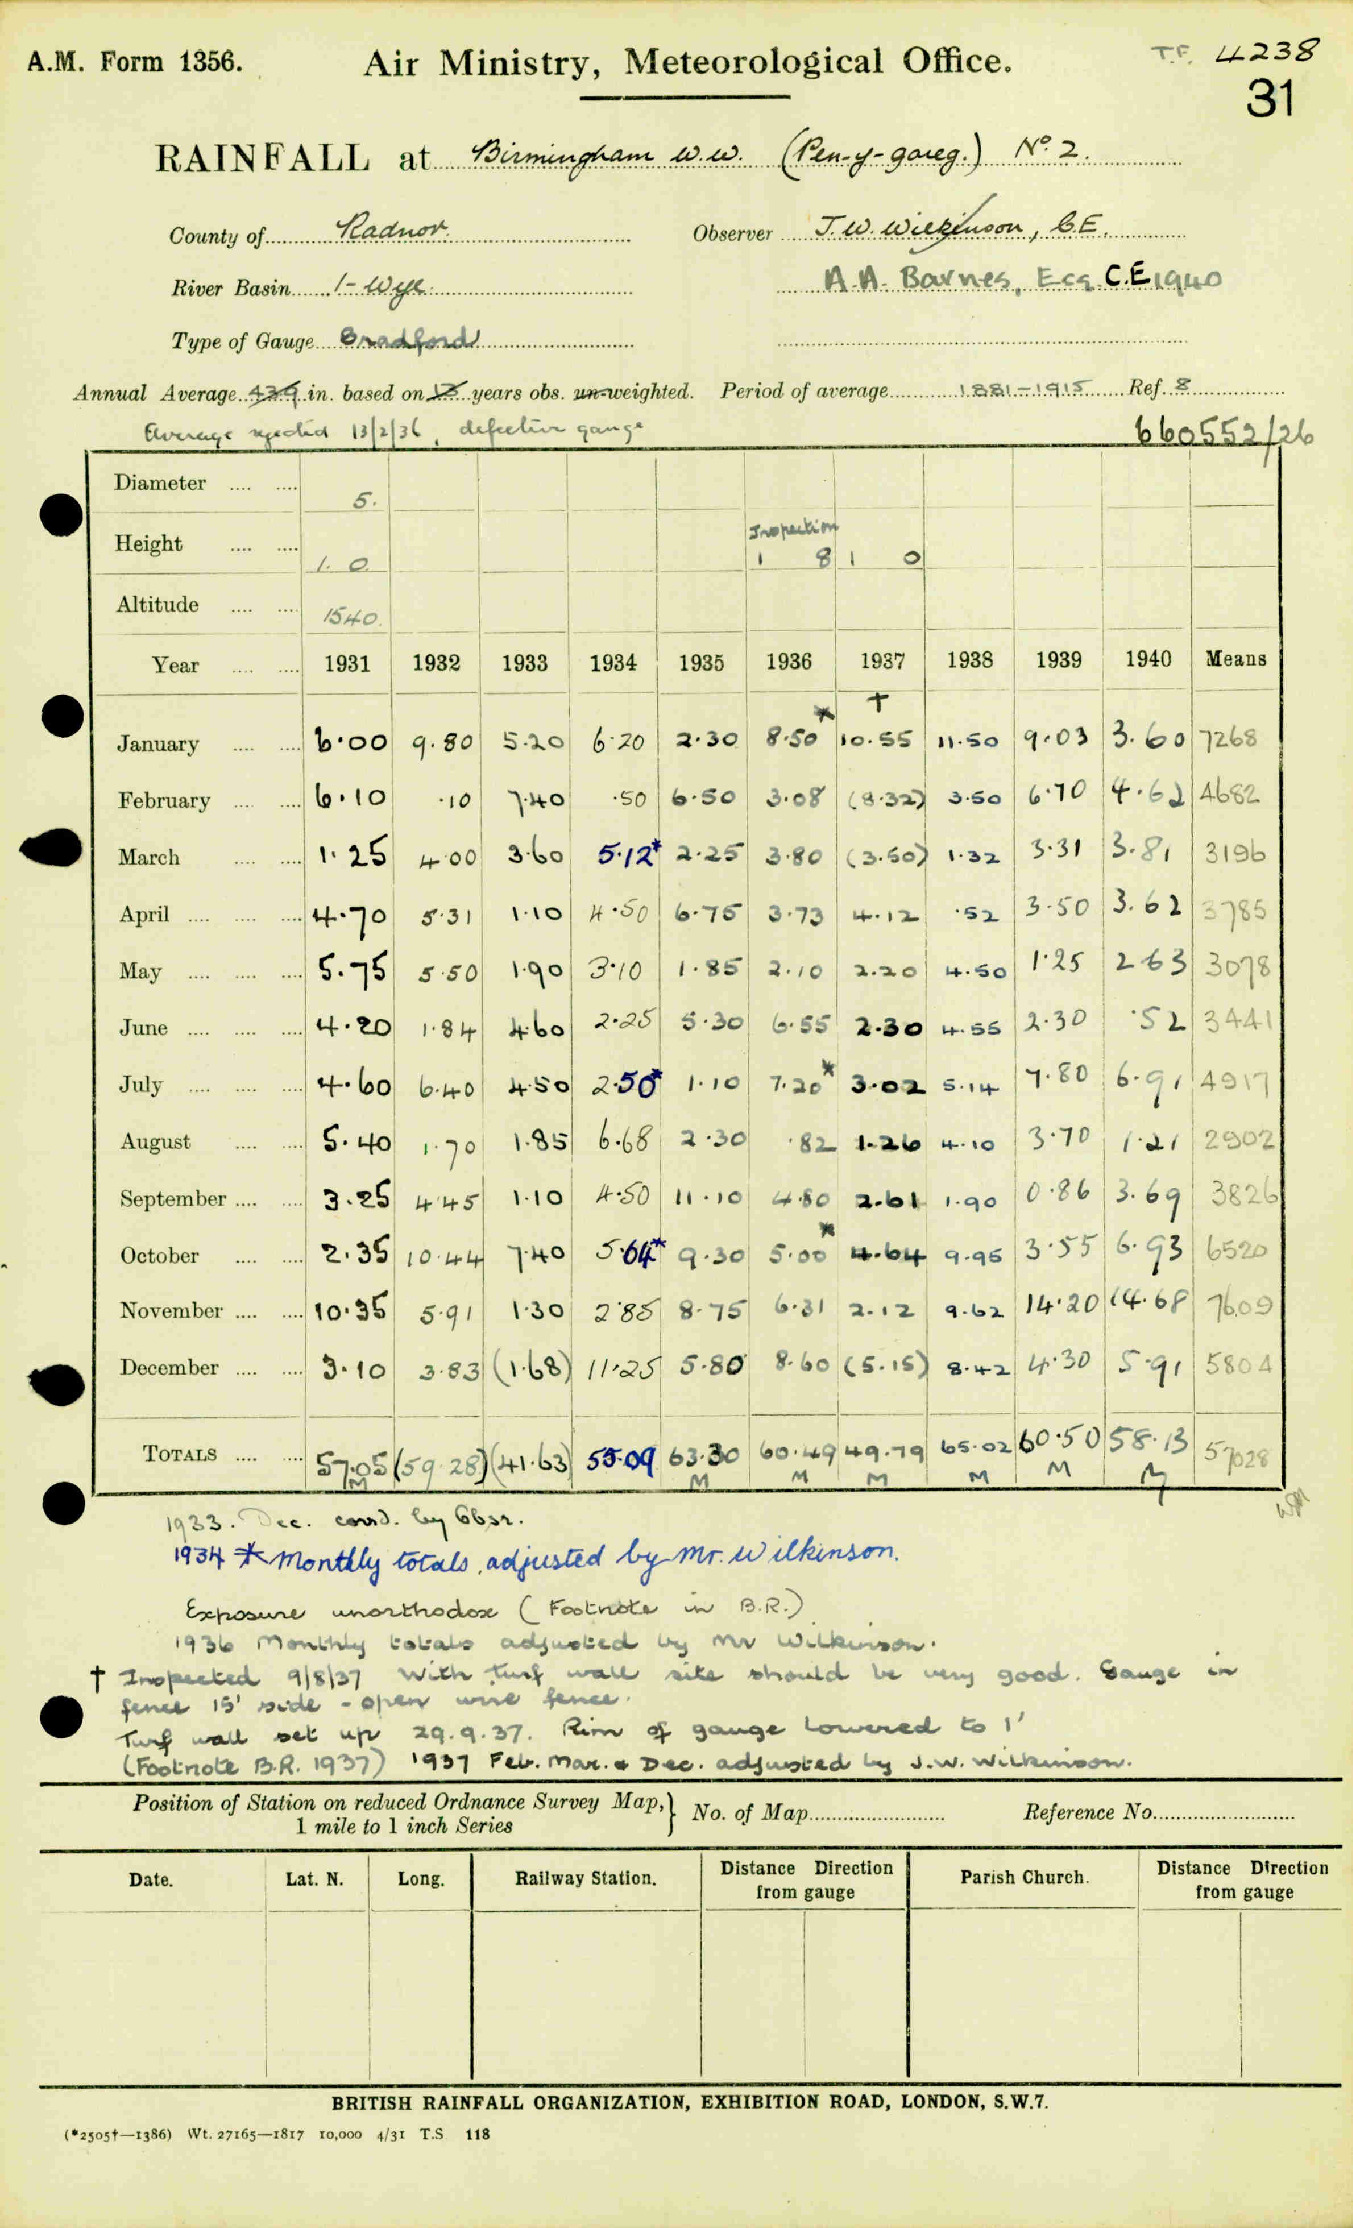 A.M. Form 1356.
Air Ministry, Meteorological Office.
T.F. 4238
31
RAINFALL at Birmingham W.W. (Pen-y-gareg.) No. 2.
County of Radnor. Observer J.W. Wilkinson, C.E.
River Basin 1-Wye A.A. Barnes, Esq. C.E 1940
Type of Gauge Bradford
Annual Average 43.9 in. based on 13 years obs. un-weighted. Period of average 1881-1915 Ref. 8
Average rejected 13/2/36, defective gauge
660552/26
Diameter .... .... 5.
Height .... .... 1. 0 Inspection 1 8 1 0
Altitude .... .... 1540.
Year .... .... 1931 1932 1933 1934 1935 1936 1937 1938 1939 1940 Means
* †
January .... .... 6.00 9.80 5.20 6.20 2.30 8.50 10.55 11.50 9.03 3.60 7268
February .... .... 6.10 .10 7.40 .50 6.50 3.08 (8.32) 3.50 6.70 4.62 4682
March .... .... 1.25 4.00 3.60 5.12* 2.25 3.80 (3.50) 1.32 3.31 3.81 3196
April .... .... .... 4.70 5.31 1.10 4.50 6.75 3.73 4.12 .52 3.50 3.62 3785
May .... .... .... 5.75 5.50 1.90 3.10 1.85 2.10 2.20 4.50 1.25 2.63 3078
June .... .... .... 4.20 1.84 4.60 2.25 5.30 6.55 2.30 4.55 2.30 .52 3441
July .... .... .... 4.60 6.40 4.50 2.50* 1.10 7.20* 3.02 5.14 7.80 6.91 4917
August .... .... 5.40 1.70 1.85 6.68 2.30 .82 1.26 4.10 3.70 1.21 2902
September .... .... 3.25 4.45 1.10 4.50 11.10 4.80 2.61 1.90 0.86 3.69 3826
October .... .... 2.35 10.44 7.40 5.64* 9.30 5.00* 4.64 9.95 3.55 6.93 6520
November .... .... 10.35 5.91 1.30 2.85 8.75 6.31 2.12 9.62 14.20 14.68 7609
December .... .... 3.10 3.83 (1.68) 11.25 5.80 8.60 (5.15) 8.42 4.30 5.91 5804
TOTALS .... .... 57.05 (59.28) (41.63) 55.09 63.30 60.49 49.79 65.02 60.50 58.13 57028
M M M M M M M
1933. Dec. corrd. by Obsr.
1934 * Monthly totals adjusted by Mr. Wilkinson.
Exposure unorthodox (Footnote in B.R.)
1936 Monthly totals adjusted by Mr Wilkinson.
† Inspected 9/8/37 With turf wall site should be very good. Gauge in
fence 15' side - open wire fence.
Turf wall set up 29.9.37. Rim of gauge lowered to 1'
(Footnote B.R. 1937) 1937 Feb. Mar. & Dec. adjusted by J.W. Wilkinson.
Position of Station on reduced Ordnance Survey Map, 1 mile to 1 inch Series } No. of Map Reference No.
Date. Lat. N. Long. Railway Station. Distance Direction from gauge Parish Church. Distance Direction from gauge
BRITISH RAINFALL ORGANIZATION, EXHIBITION ROAD, LONDON, S.W.7.
(*2505†—1386) Wt. 27165—1817 10,000 4/31 T.S 118